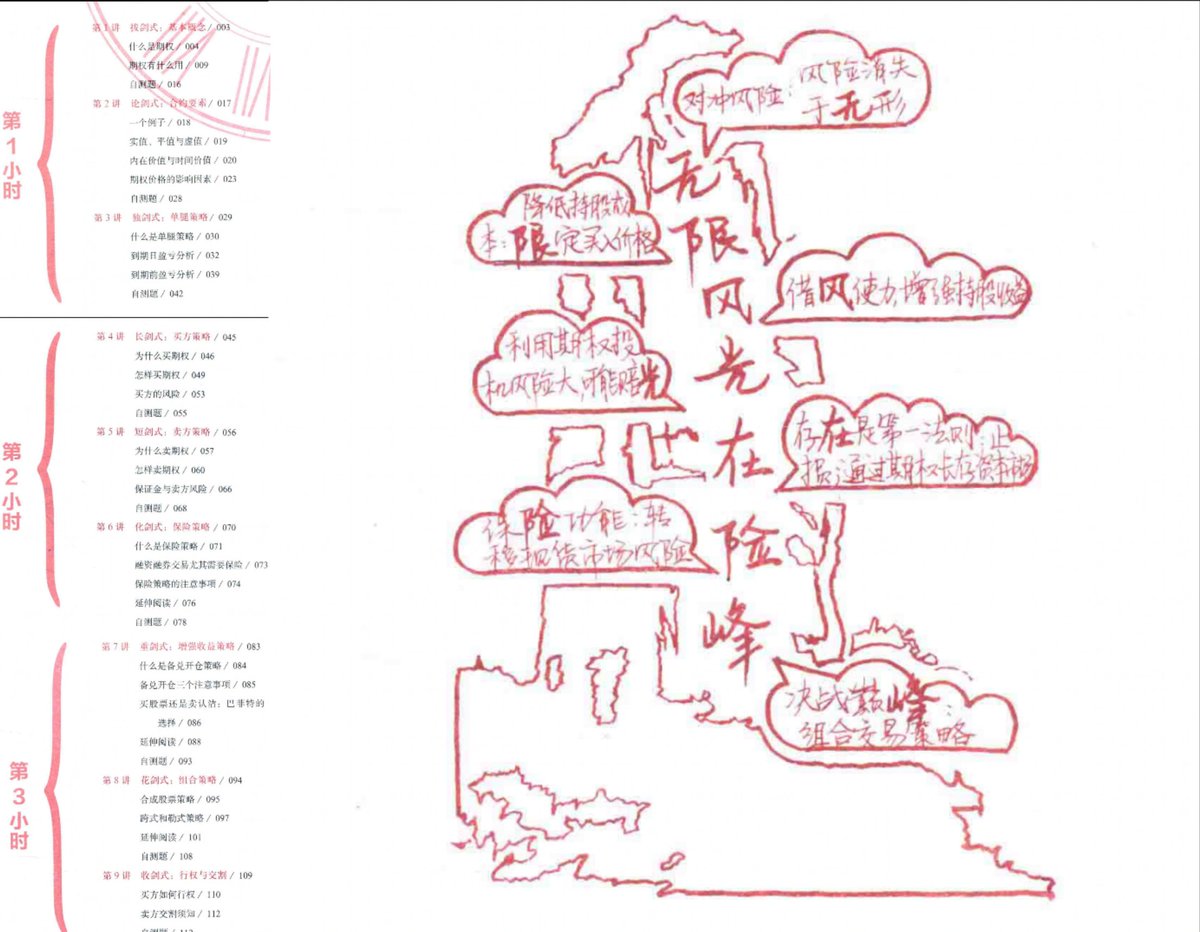 第1小时
第1讲 拔剑式：基本概念 / 003
什么是期权 / 004
期权有什么用 / 009
自测题 / 016
第2讲 论剑式：合约要素 / 017
一个例子 / 018
实值、平值与虚值 / 019
内在价值与时间价值 / 020
期权价格的影响因素 / 023
自测题 / 028
第3讲 独剑式：单腿策略 / 029
什么是单腿策略 / 030
到期日盈亏分析 / 032
到期前盈亏分析 / 039
自测题 / 042
第2小时
第4讲 长剑式：买方策略 / 045
为什么买期权 / 046
怎样买期权 / 049
买方的风险 / 053
自测题 / 055
第5讲 短剑式：卖方策略 / 056
为什么卖期权 / 057
怎样卖期权 / 060
保证金与卖方风险 / 066
自测题 / 068
第6讲 化剑式：保险策略 / 070
什么是保险策略 / 071
融资融券交易尤其需要保险 / 073
保险策略的注意事项 / 074
延伸阅读 / 076
自测题 / 078
第3小时
第7讲 重剑式：增强收益策略 / 083
什么是备兑开仓策略 / 084
备兑开仓三个注意事项 / 085
买股票还是卖认沽：巴菲特的
选择 / 086
延伸阅读 / 088
自测题 / 093
第8讲 花剑式：组合策略 / 094
合成股票策略 / 095
跨式和勒式策略 / 097
延伸阅读 / 101
自测题 / 108
第9讲 收剑式：行权与交割 / 109
买方如何行权 / 110
卖方交割须知 / 112
自测题 / 113
对冲风险：风险消失
于无形
无限风光在险峰
降低持股成
本：限定买入价格
借风使力，增强持股收益
利用期权投
机风险大，可能赔光
存在是第一法则：止
损，通过期权长存资本市场
保险功能：转
移现货市场风险
决战巅峰：
组合交易策略